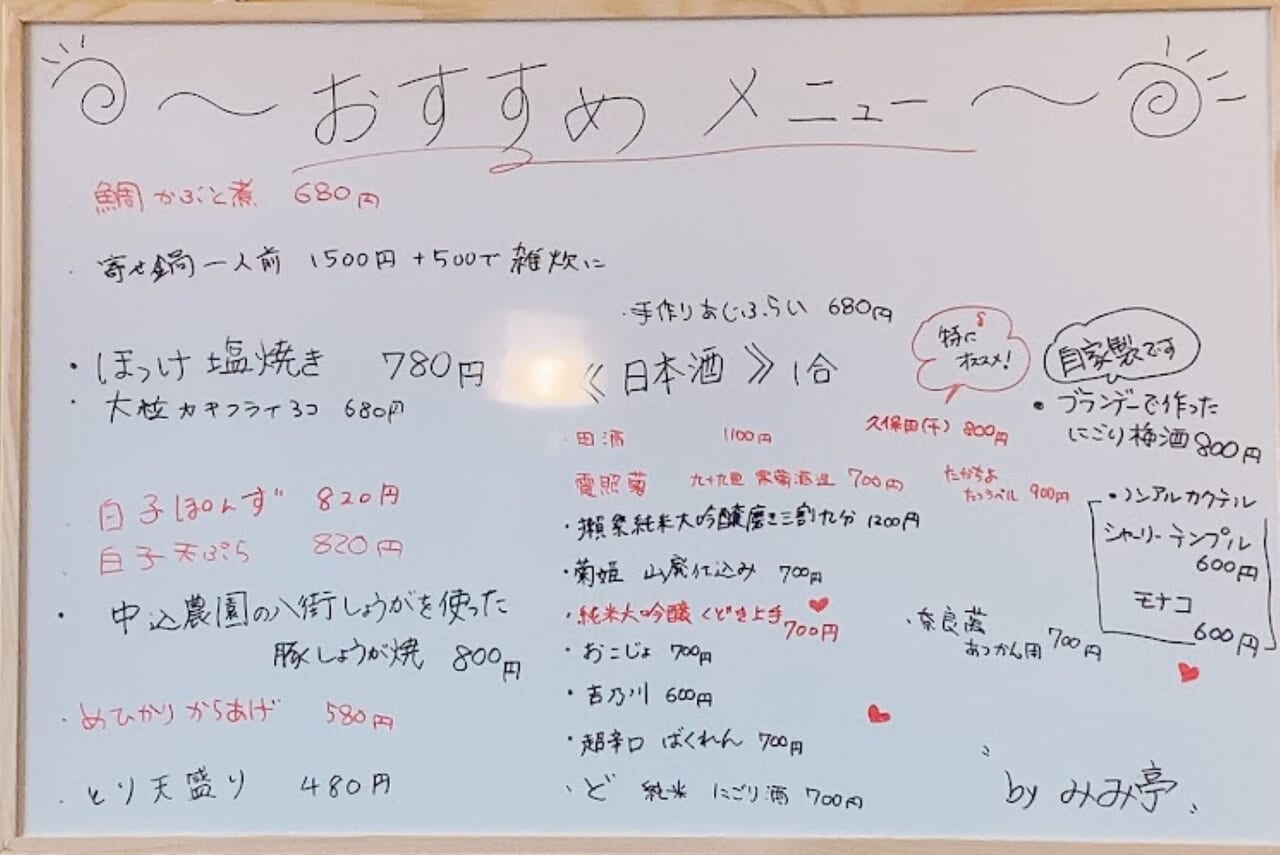 〜おすすめメニュー〜
鯛かぶと煮 680円
・寄せ鍋一人前 1500円 +500で雑炊に
・手作りあじふらい 680円
・ほっけ塩焼き 780円
・大粒カキフライ3コ 680円
白子ぽんず 820円
・白子天ぷら 820円
・中込農園の八街しょうがを使った
豚しょうが焼 800円
・めひかりからあげ 580円
・とり天盛り 480円
《日本酒》1合
特に
オススメ!
久保田(千) 800円
・田酒 1100円
電照菊 九十九里 寒菊酒造 700円
たかちよ
たつラベル 900円
・獺祭純米大吟醸磨き三割九分 1200円
・菊姫 山廃仕込み 700円
・純米大吟醸くどき上手 700円
・おこじょ 700円
・吉乃川 600円
・超辛口 ばくれん 700円
・ど 純米 にごり酒 700円
・奈良萬
あつかん用 700円
自家製です
・ブランデーで作った
にごり梅酒 800円
・ノンアルカクテル
シャーリーテンプル
600円
モナコ
600円
by みみ亭